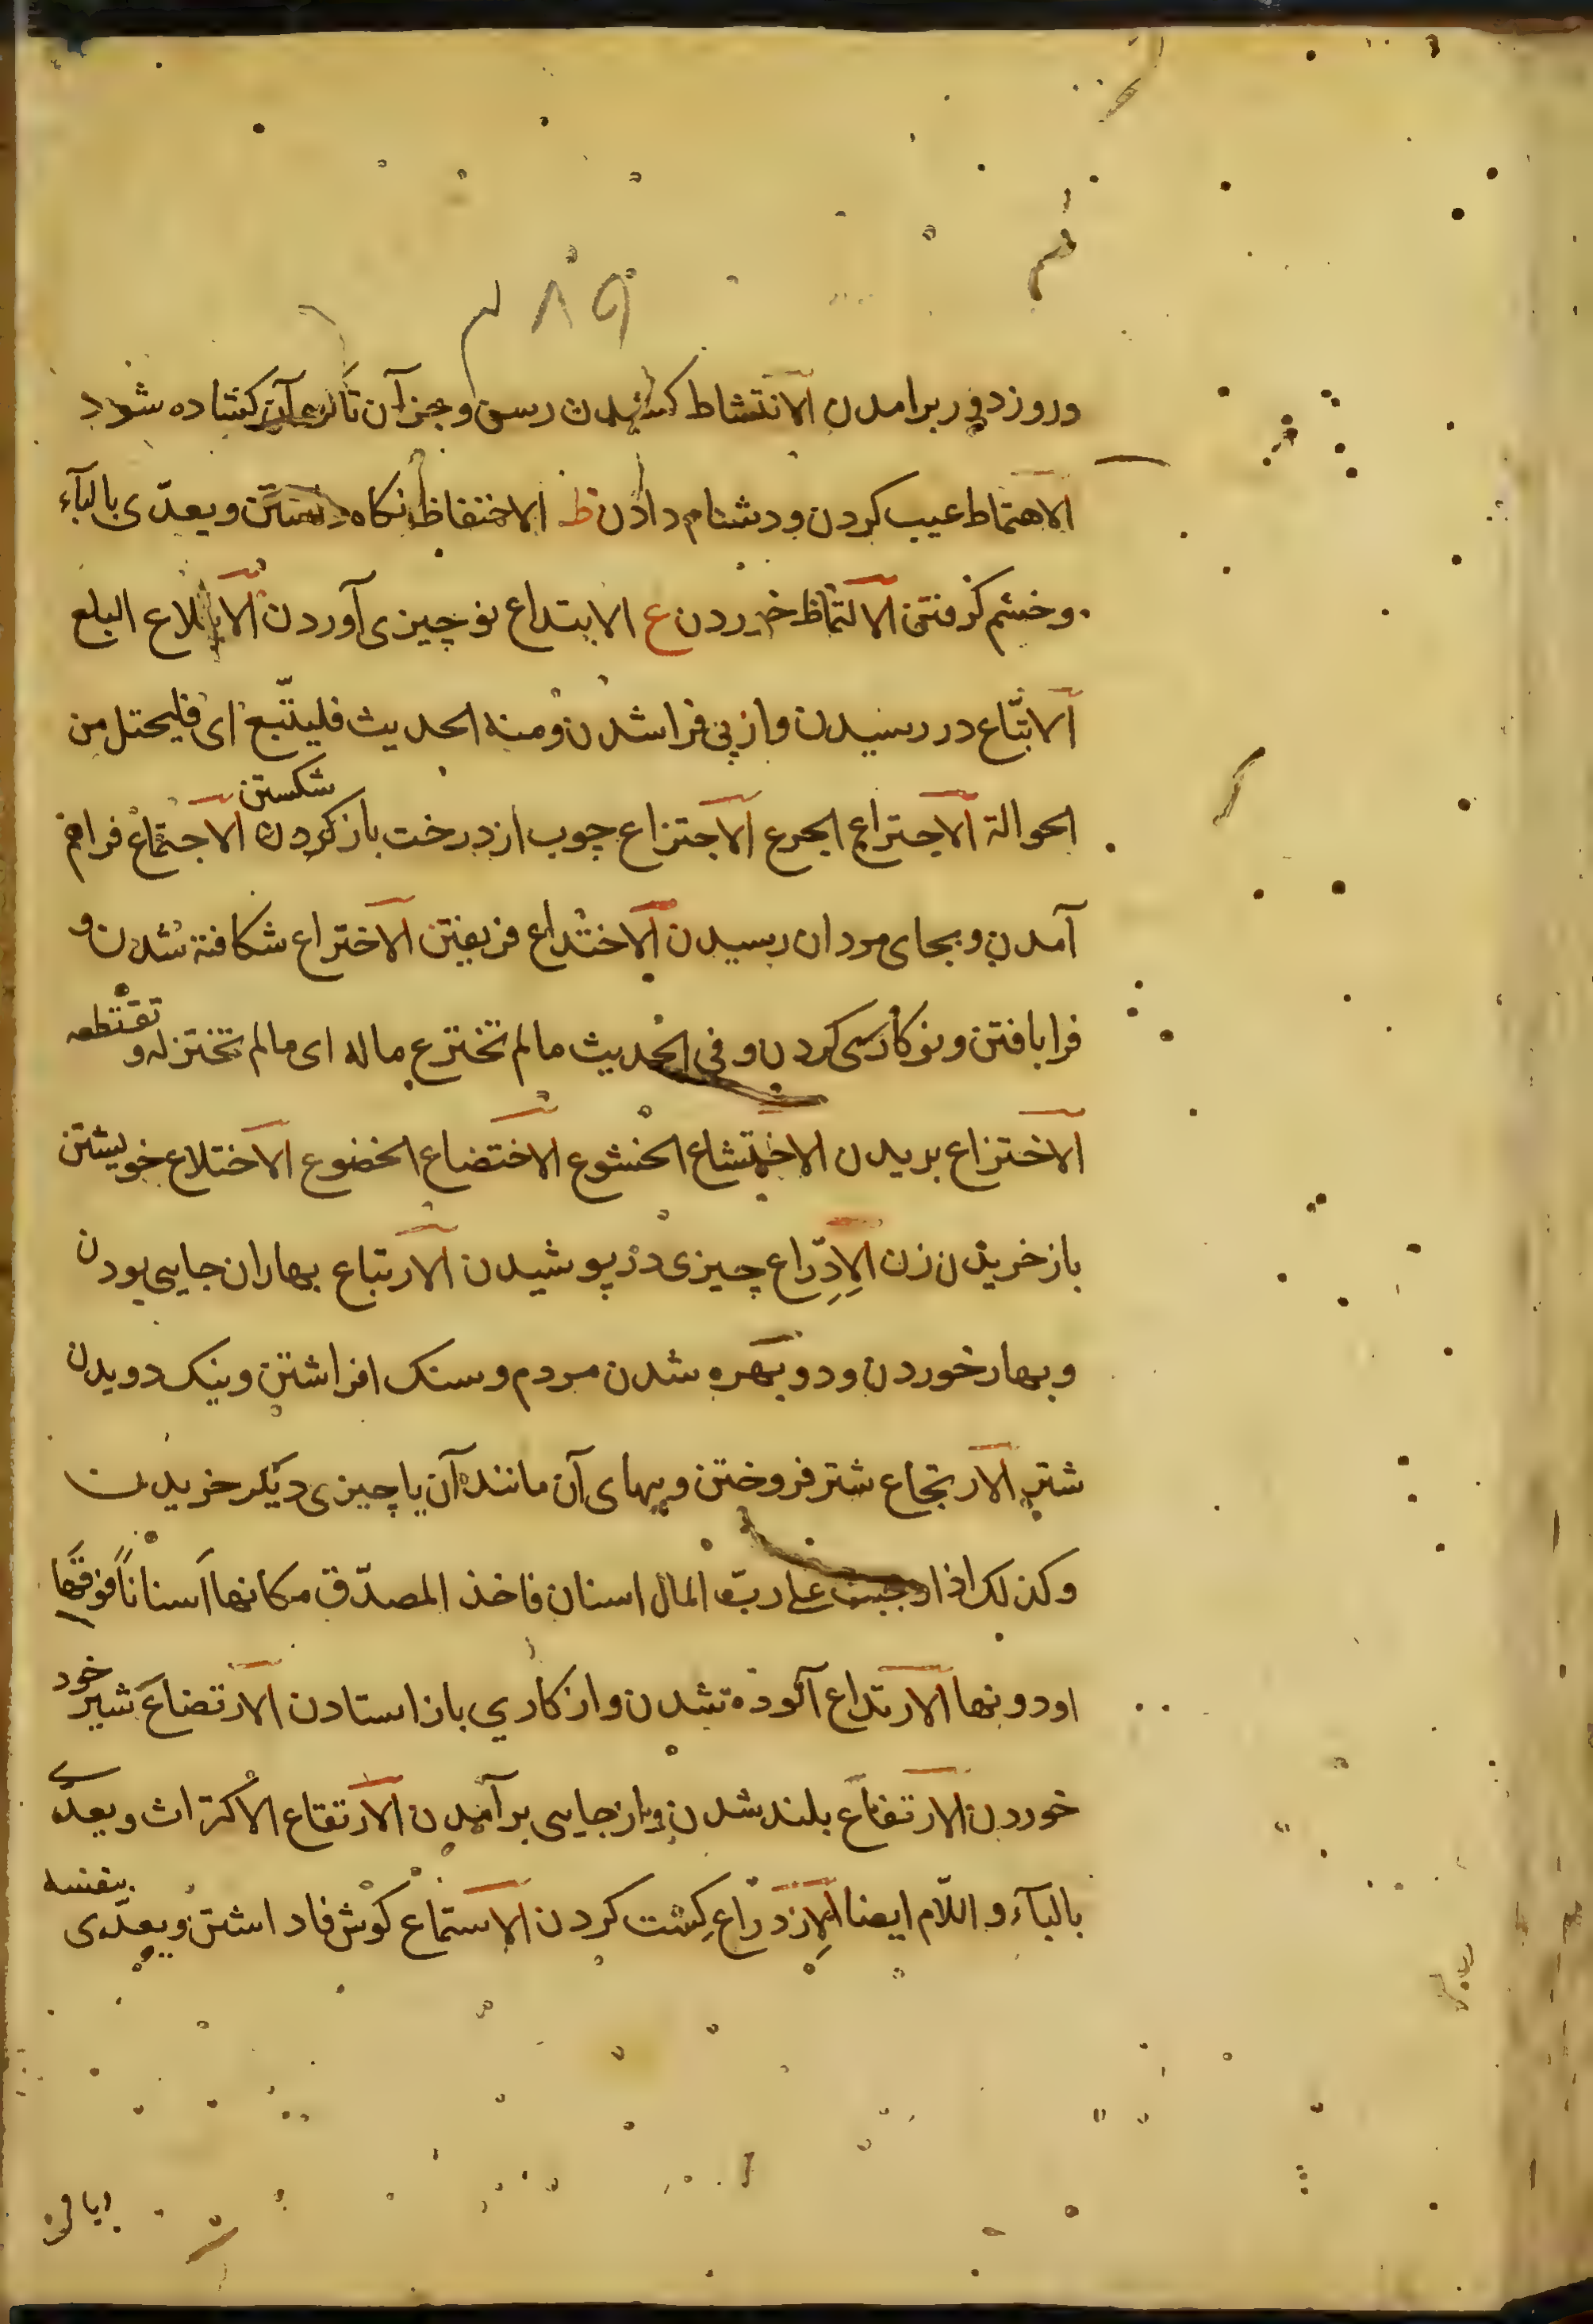 وروز دور برامدن الانتشاط کشیدن رسن وجز آن تا کره آن کشاده شود
الاهتماط عیب کردن ودشنام دادن ظ الاحتفاظ نکاه داشتن ویعدّی بالبآء
وخشم کرفتن الالتماظ خوردن ع الابتداع نو چیزی آوردن الابتلاع البلع
الاتّباع در رسیدن واز پی فرا شدن ومنه الحدیث فلیتّبع ای فلیحتل من
الحوالة الاجتراع الجرع الاجتزاع چوب از درخت باز کردن شکستن الاجتماع فراهم
آمدن وبجای مردان رسیدن الاختداع فریفتن الاختراع شکافته شدن و
فرا بافتن ونو کاری کردن وفی الحدیث مالم تخترع ماله ای مالم تختزله وتقتطعه
الاختزاع بریدن الاختشاع الخشوع الاختضاع الخضوع الاختلاع خویشتن
باز خریدن زن الاِدِّراع چیزی در پوشیدن الارتباع بهاران جایی بودن
وبهار خوردن ودو بهره شدن مردم وسنک افراشتن ونیک دویدن
شتر الارتجاع شتر فروختن وببهای آن مانند آن یا چیزی دیکر خریدن
وکذلک اذا وجبت علی ربّ المال اسنان فاخذ المصدّق مکانها اسناناً فوقها
او دونها الارتداع آلوده شدن واز کاری باز استادن الارتضاع شیر خود
خوردن الارتفاع بلند شدن واز جایی برآمدن الارتقاع الاکتراث ویعدّی
بالبآء واللّام ایضا الاِزدراع کِشت کردن الاستماع کوش فا داشتن ویعدّی بنفسه